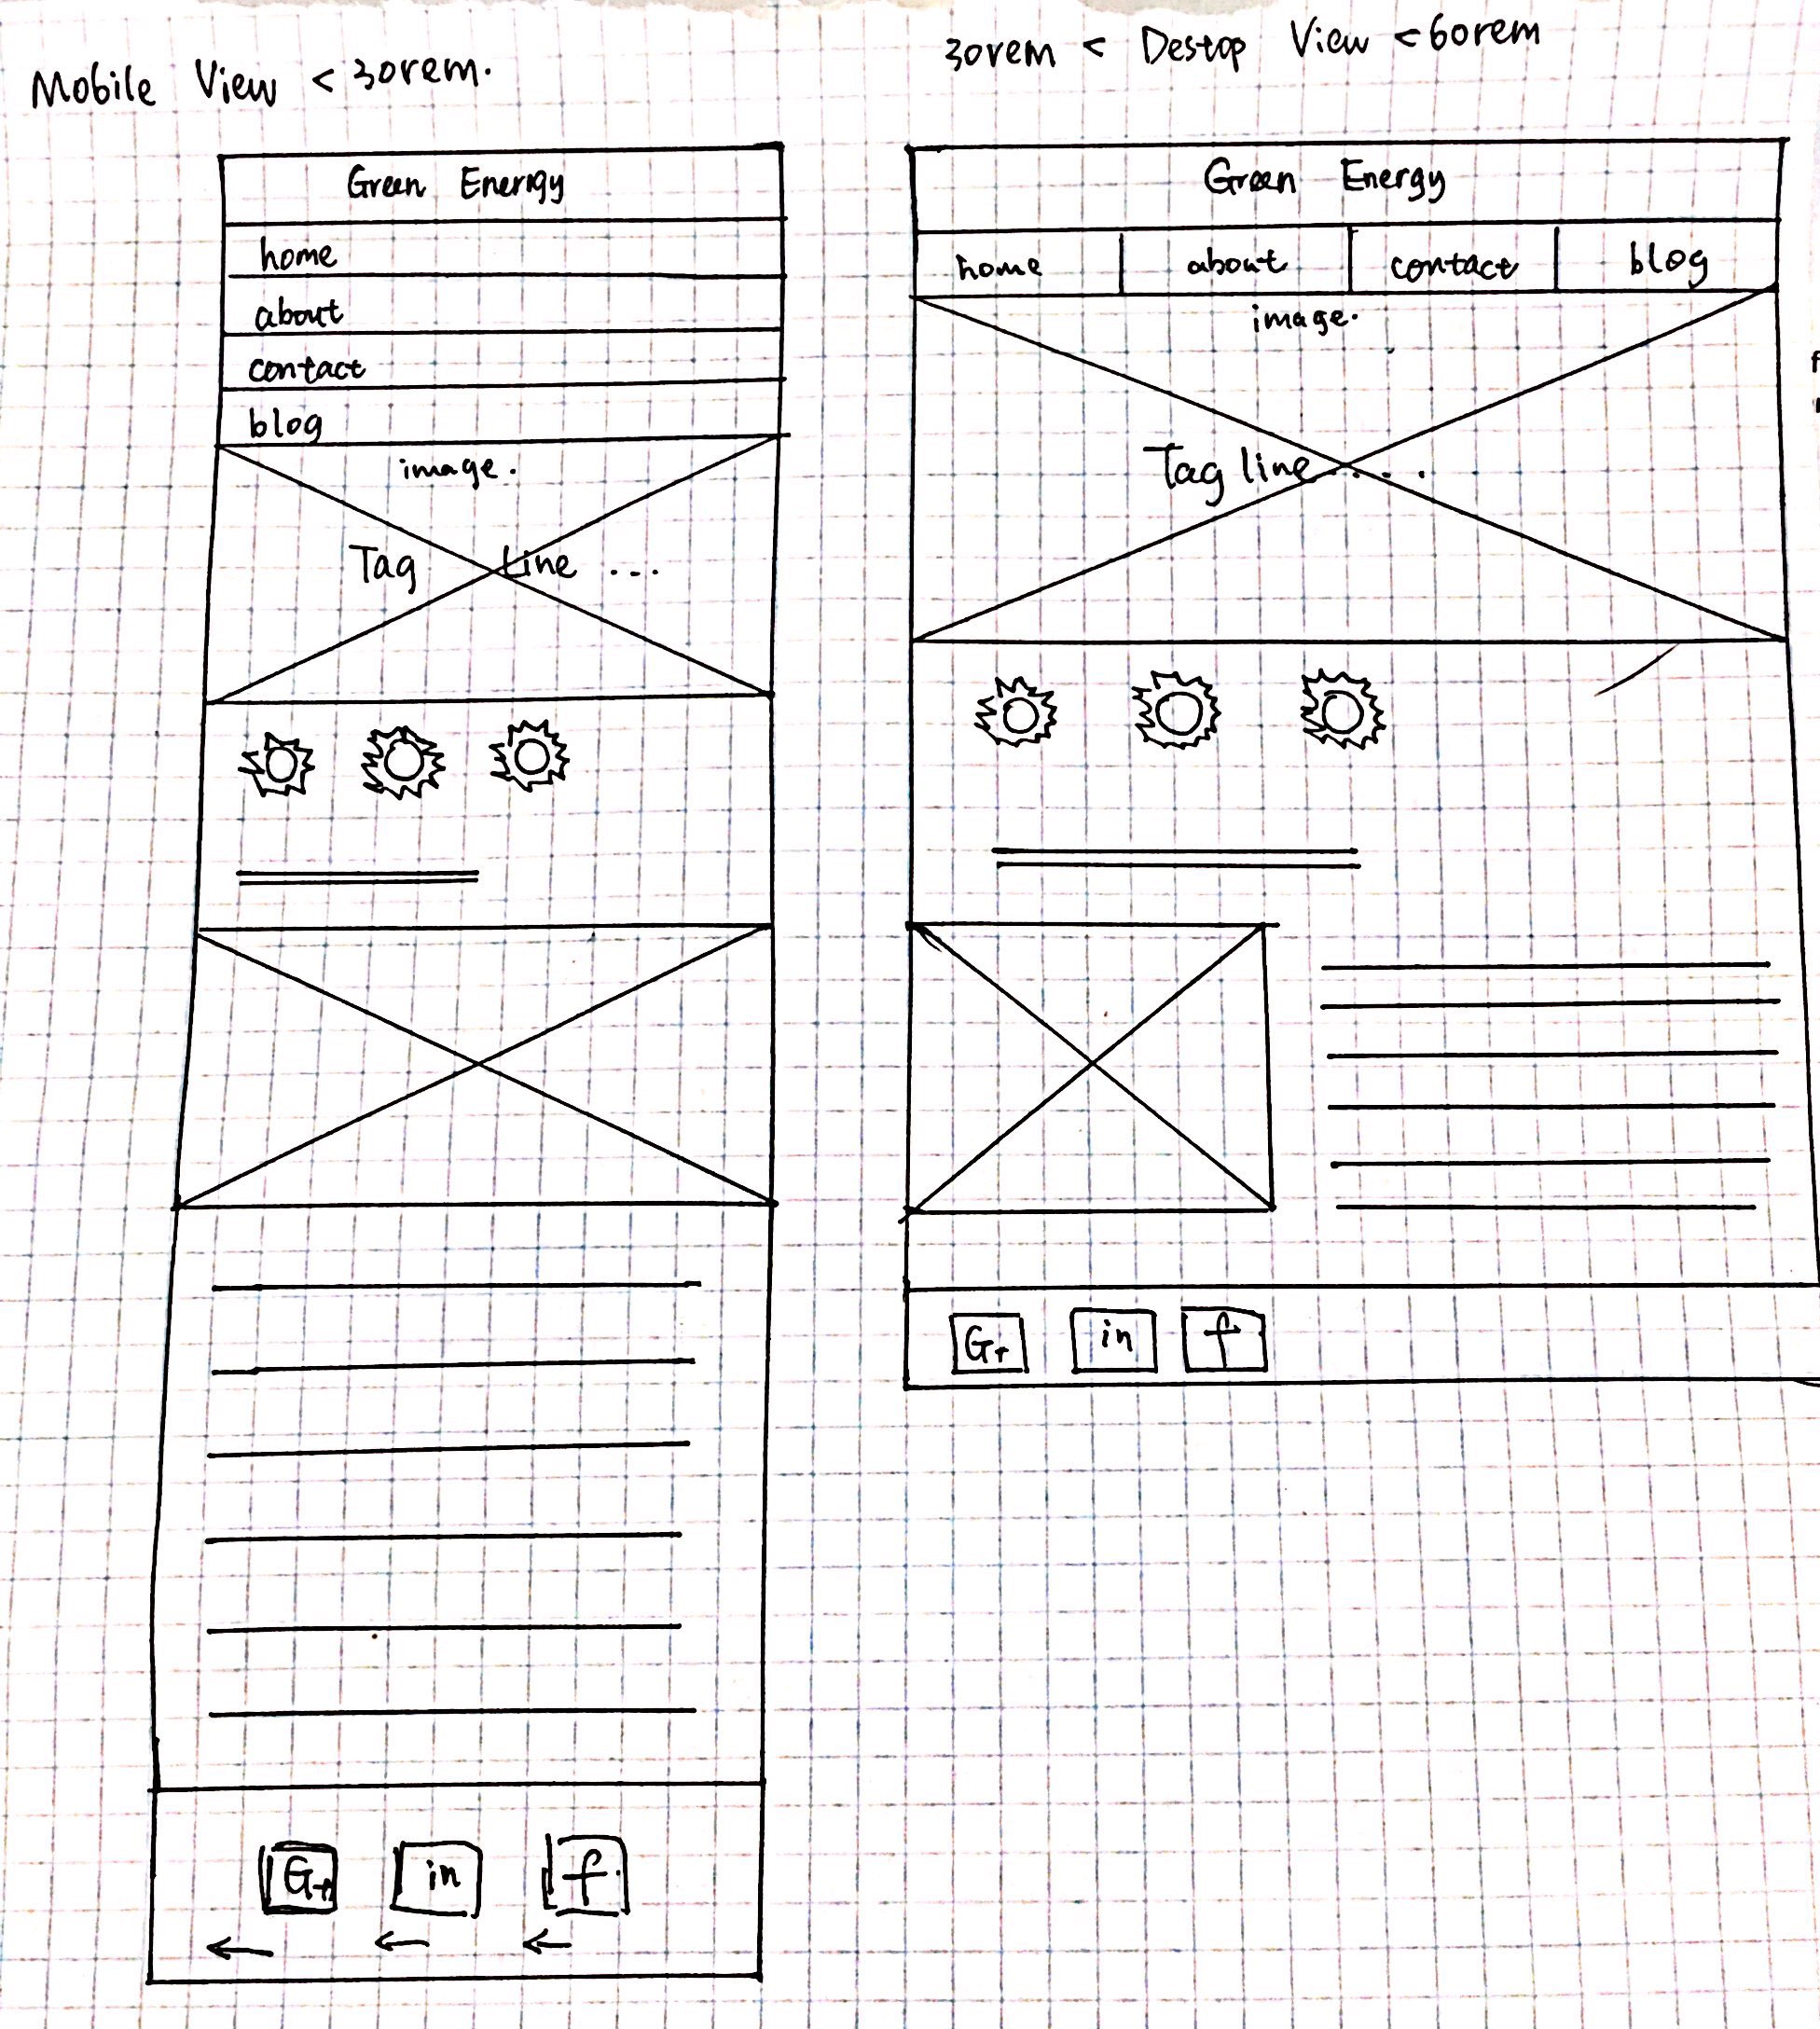 Mobile View < 30rem.
Green Energy
home
about
contact
blog
image.
Tag Line ...
G+ in f
30rem < Destop View < 60rem
Green Energy
home about contact blog
image.
Tag line ....
G+ in f